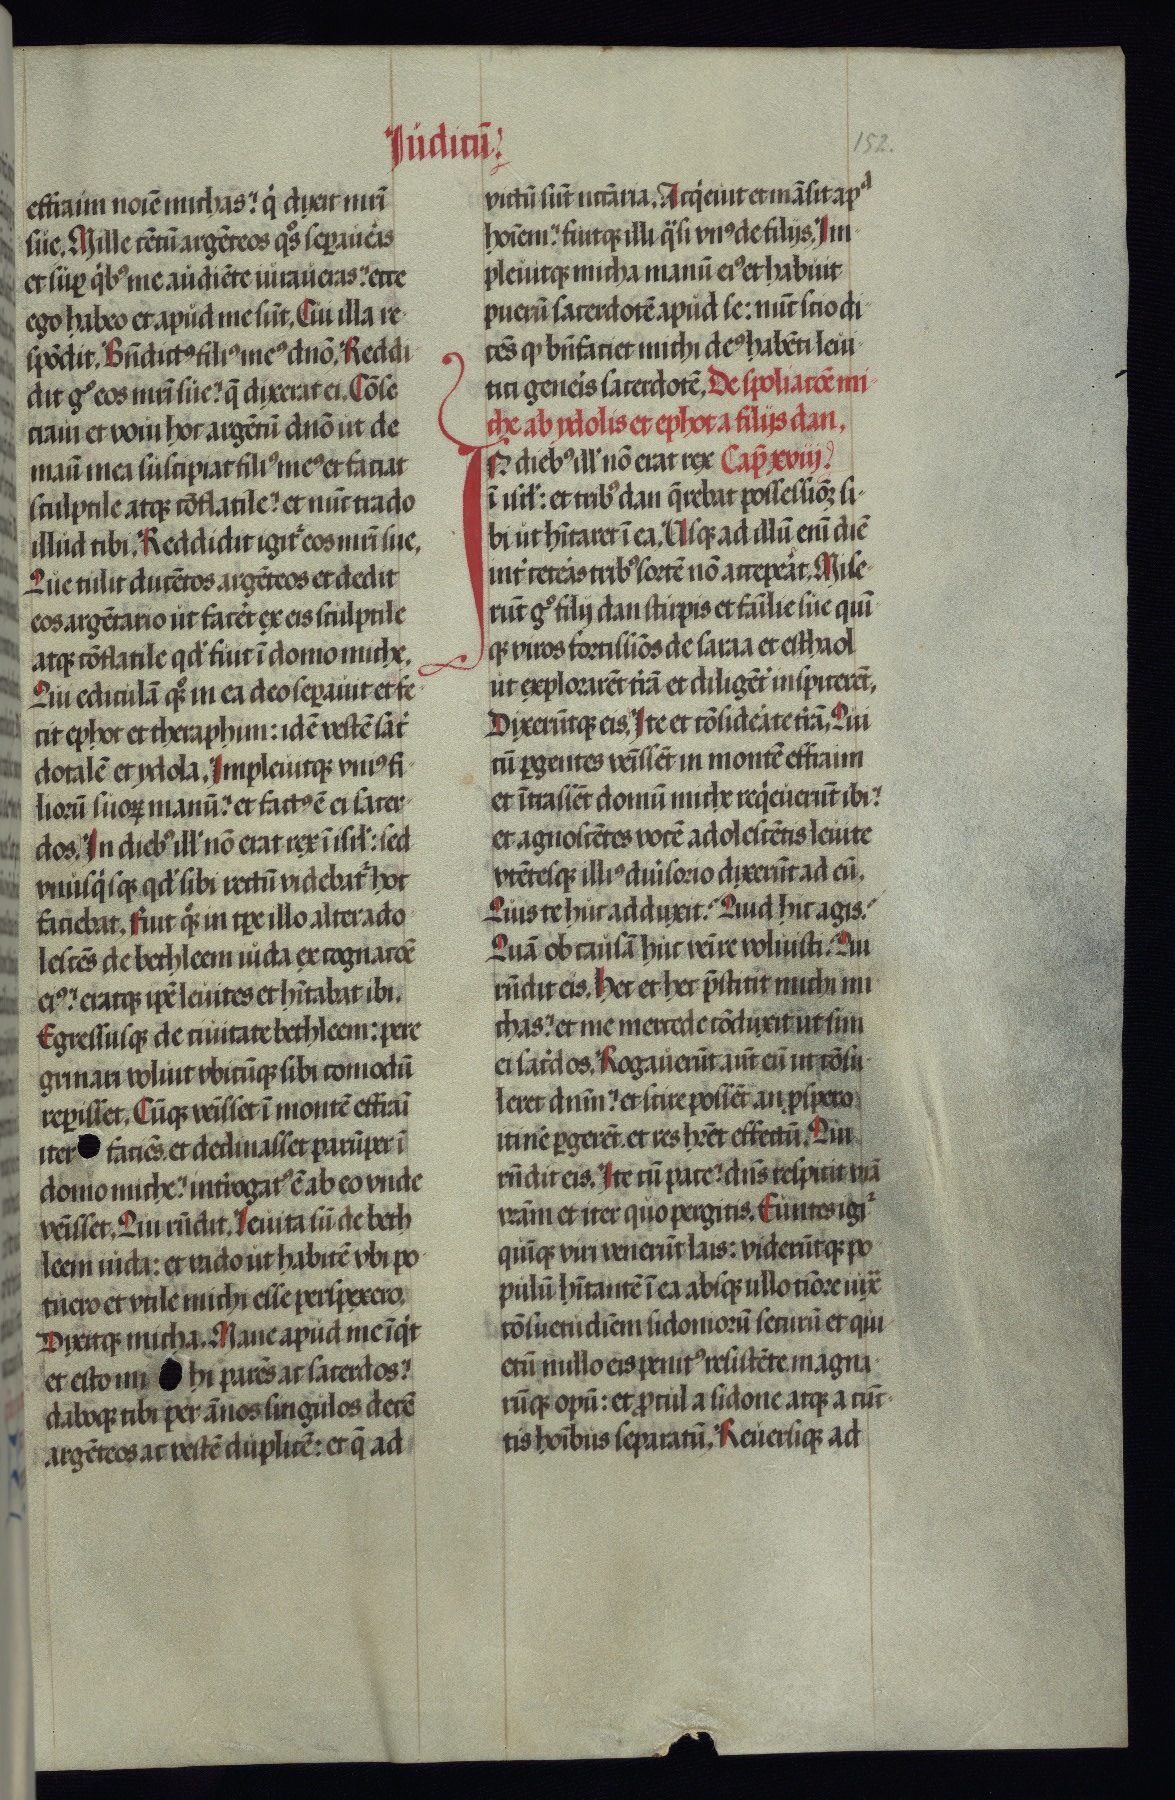 Iudicū
152.
effraim noīe michas? q̇ dixit mr̄i
sue. Mille cētū argēteos qͦs sepaūas
et suꝑ q̇bꝰ me audiēte iuraueras? ecce
ego habeo et apud me sūt. Cui illa re-
spōdit. Bn̄dictꝰ filiꝰ meꝰ dnō. Reddi-
dit gͦ eos mr̄i sue? q̄ dixerat ei. Cōse
craui et voui hoc argētū dnō ut de
manu mea suscipiat filiꝰ meꝰ et faciat
sculptile atqꝫ cōflatile? et nūc trado
illud tibi. Reddidit igit̄ eos mr̄i sue.
Que tulit ducētos argēteos et dedit
eos argētario ut facēt ex eis sculptile
atqꝫ cōflatile qd̓ fuit ī domo miche.
Qui ediculā qͦꝫ in ea deo sepauit et fe-
cit ephot et theraphim: idē vestē sac̄
dotalē et ydola. Impleuitqꝫ vniꝰ fi-
liorū suoꝝ manū? et factꝰ ē ei sacer-
dos. In diebꝰ ill̓ nō erat rex ī isrl̓: sed
vnusq̇sqꝫ qd̓ sibi rectū videbat̄ hoc
faciebat. Fuit qͦꝫ in tꝑe illo alter ado
lescēs de bethleem iuda ex cognatōe
eiꝰ? eratqꝫ ipē leuites et hītabat ibi.
Egressusqꝫ de ciuitate bethleem: pere
grinari voluit vbicūqꝫ sibi comodū
reꝑisset. Cūqꝫ veīsset ī montē effraī
iter faciēs. et declinasset parūper ī
domo miche? int̄rogatꝰ ē ab eo vnde
veīsset. Qui rn̄dit. Leuita sū de beth
leem iuda: et vado ut habitē vbi po-
tuero et vtile michi esse perspexero.
Dixitqꝫ micha. Mane apud me īq̇t
et esto mi hi parēs ac sacerdos?
daboqꝫ tibi per ānos singulos decē
argēteos ac vestē duplicē: et q̄ ad
victū sūt n̄ccāria. Acq̇euit et māsit apᵈ
hoīem? fuitqꝫ illi q̄si vnꝰ de filijs. Im-
pleuitqꝫ micha manū eiꝰ et habuit
puerū sacerdotē apud se: nūc scio di-
cēs ꝙ bn̄faciet michi deꝰ habēti leui-
tici geneīs sacerdotē. De spoliatōe mi-
che ab ydolis et ephot a filijs dan.
IN diebꝰ ill̓ nō erat rex Cap̄ xviij?
ī isrl̓: et tribꝰ dan q̄rebat possessiōꝫ si-
bi ut hītaret ī ea. Usqꝫ ad illū enī diē
int̄ ceteās tribꝰ sortē nō acceperāt. Mise-
rūt gͦ filij dan stirpis et famīlie sue quī-
qꝫ viros fortissīos de saraa et esthaol
ut explorarēt t̄rā et diligēt̄ inspicerēt.
Dixerūtqꝫ eis. Ite et cōsideāte t̄rā. Qui
cū ꝑgentes veīssēt in montē effraim
et ītrassēt domū miche req̇euerūt ibi?
et agnoscētes vocē adolescētis leuite
vtētesqꝫ illiꝰ diūsorio dixerūt ad eū.
Quis te huc adduxit? Quid hic agis?
Quā ob causā huc veīre voluisti? Qui
rn̄dit eis. Hec et hec p̄stitit michi mi
chas? et me mercede cōduxit ut sim
ei sac̄dos. Rogauerūt aūt eū ut cōsu-
leret dnm̄? et scire possēt an ꝓspero
itinē ꝑgerēt. et res hr̄et effectū. Qui
rn̄dit eis. Ite cū pace? dn̄s respicit viā
vr̄am et iter quo pergitis. Euntes igiᷣ
quīqꝫ viri venerūt lais: viderūtqꝫ po-
pulū hītantē ī ea absqꝫ ullo tīore iux̄
cōsuetudīem sidoniorū securū et qui-
etū nullo eis penitꝰ resistēte magna-
rūqꝫ opū: et ꝓcul a sidone atqꝫ a cūc-
tis hoībus separatū. Reuersiqꝫ ad